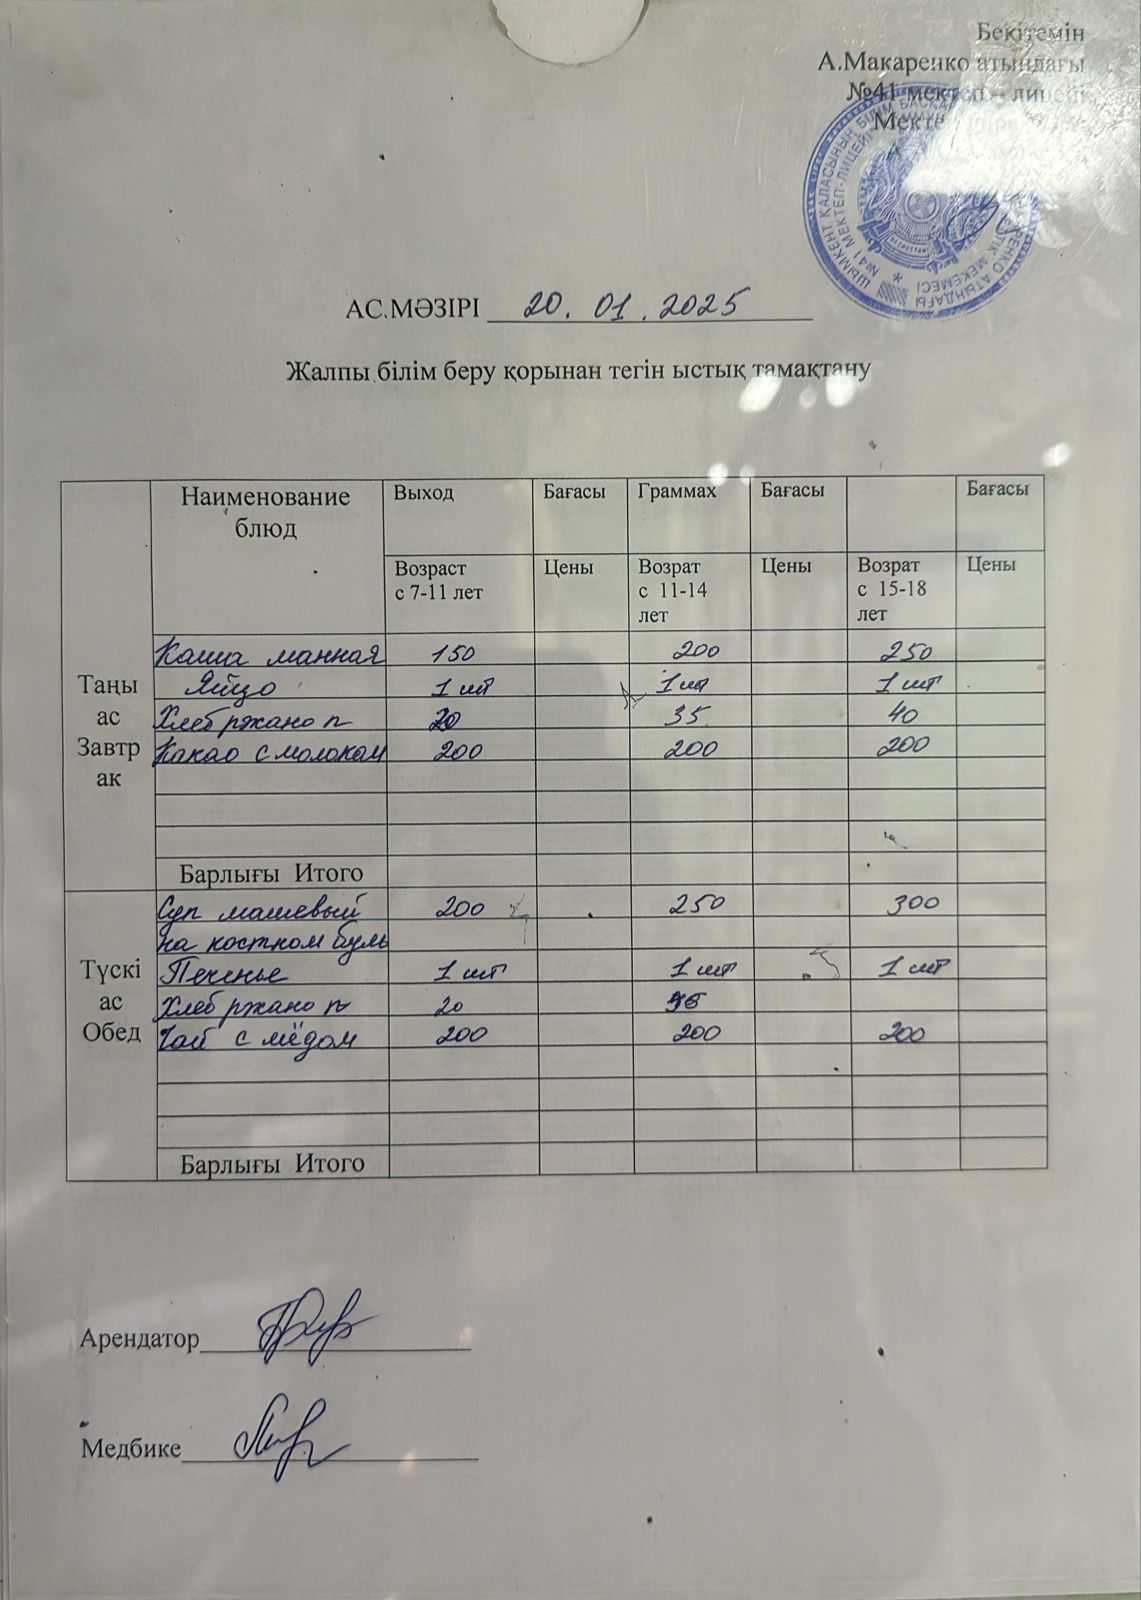 Бекітемін
А.Макаренко атындағы
№41 мектеп – лицейі
АС.МӘЗІРІ 20. 01. 2025
Жалпы білім беру қорынан тегін ыстық тамақтану
Наименование блюд Выход Бағасы Граммах Бағасы Бағасы
Возраст с 7-11 лет Цены Возрат с 11-14 лет Цены Возрат с 15-18 лет Цены
Таңы ас Завтр ак
Каша манная 150 200 250
Яйцо 1 шт 1 шт 1 шт
Хлеб ржано п 20 35 40
Какао с молоком 200 200 200
Барлығы Итого
Түскі ас Обед
Суп машевый 200 250 300
на костном буль
Печенье 1 шт 1 шт 1 шт
Хлеб ржано п 20
Чай с мёдом 200 200 200
Барлығы Итого
Арендатор
Медбике